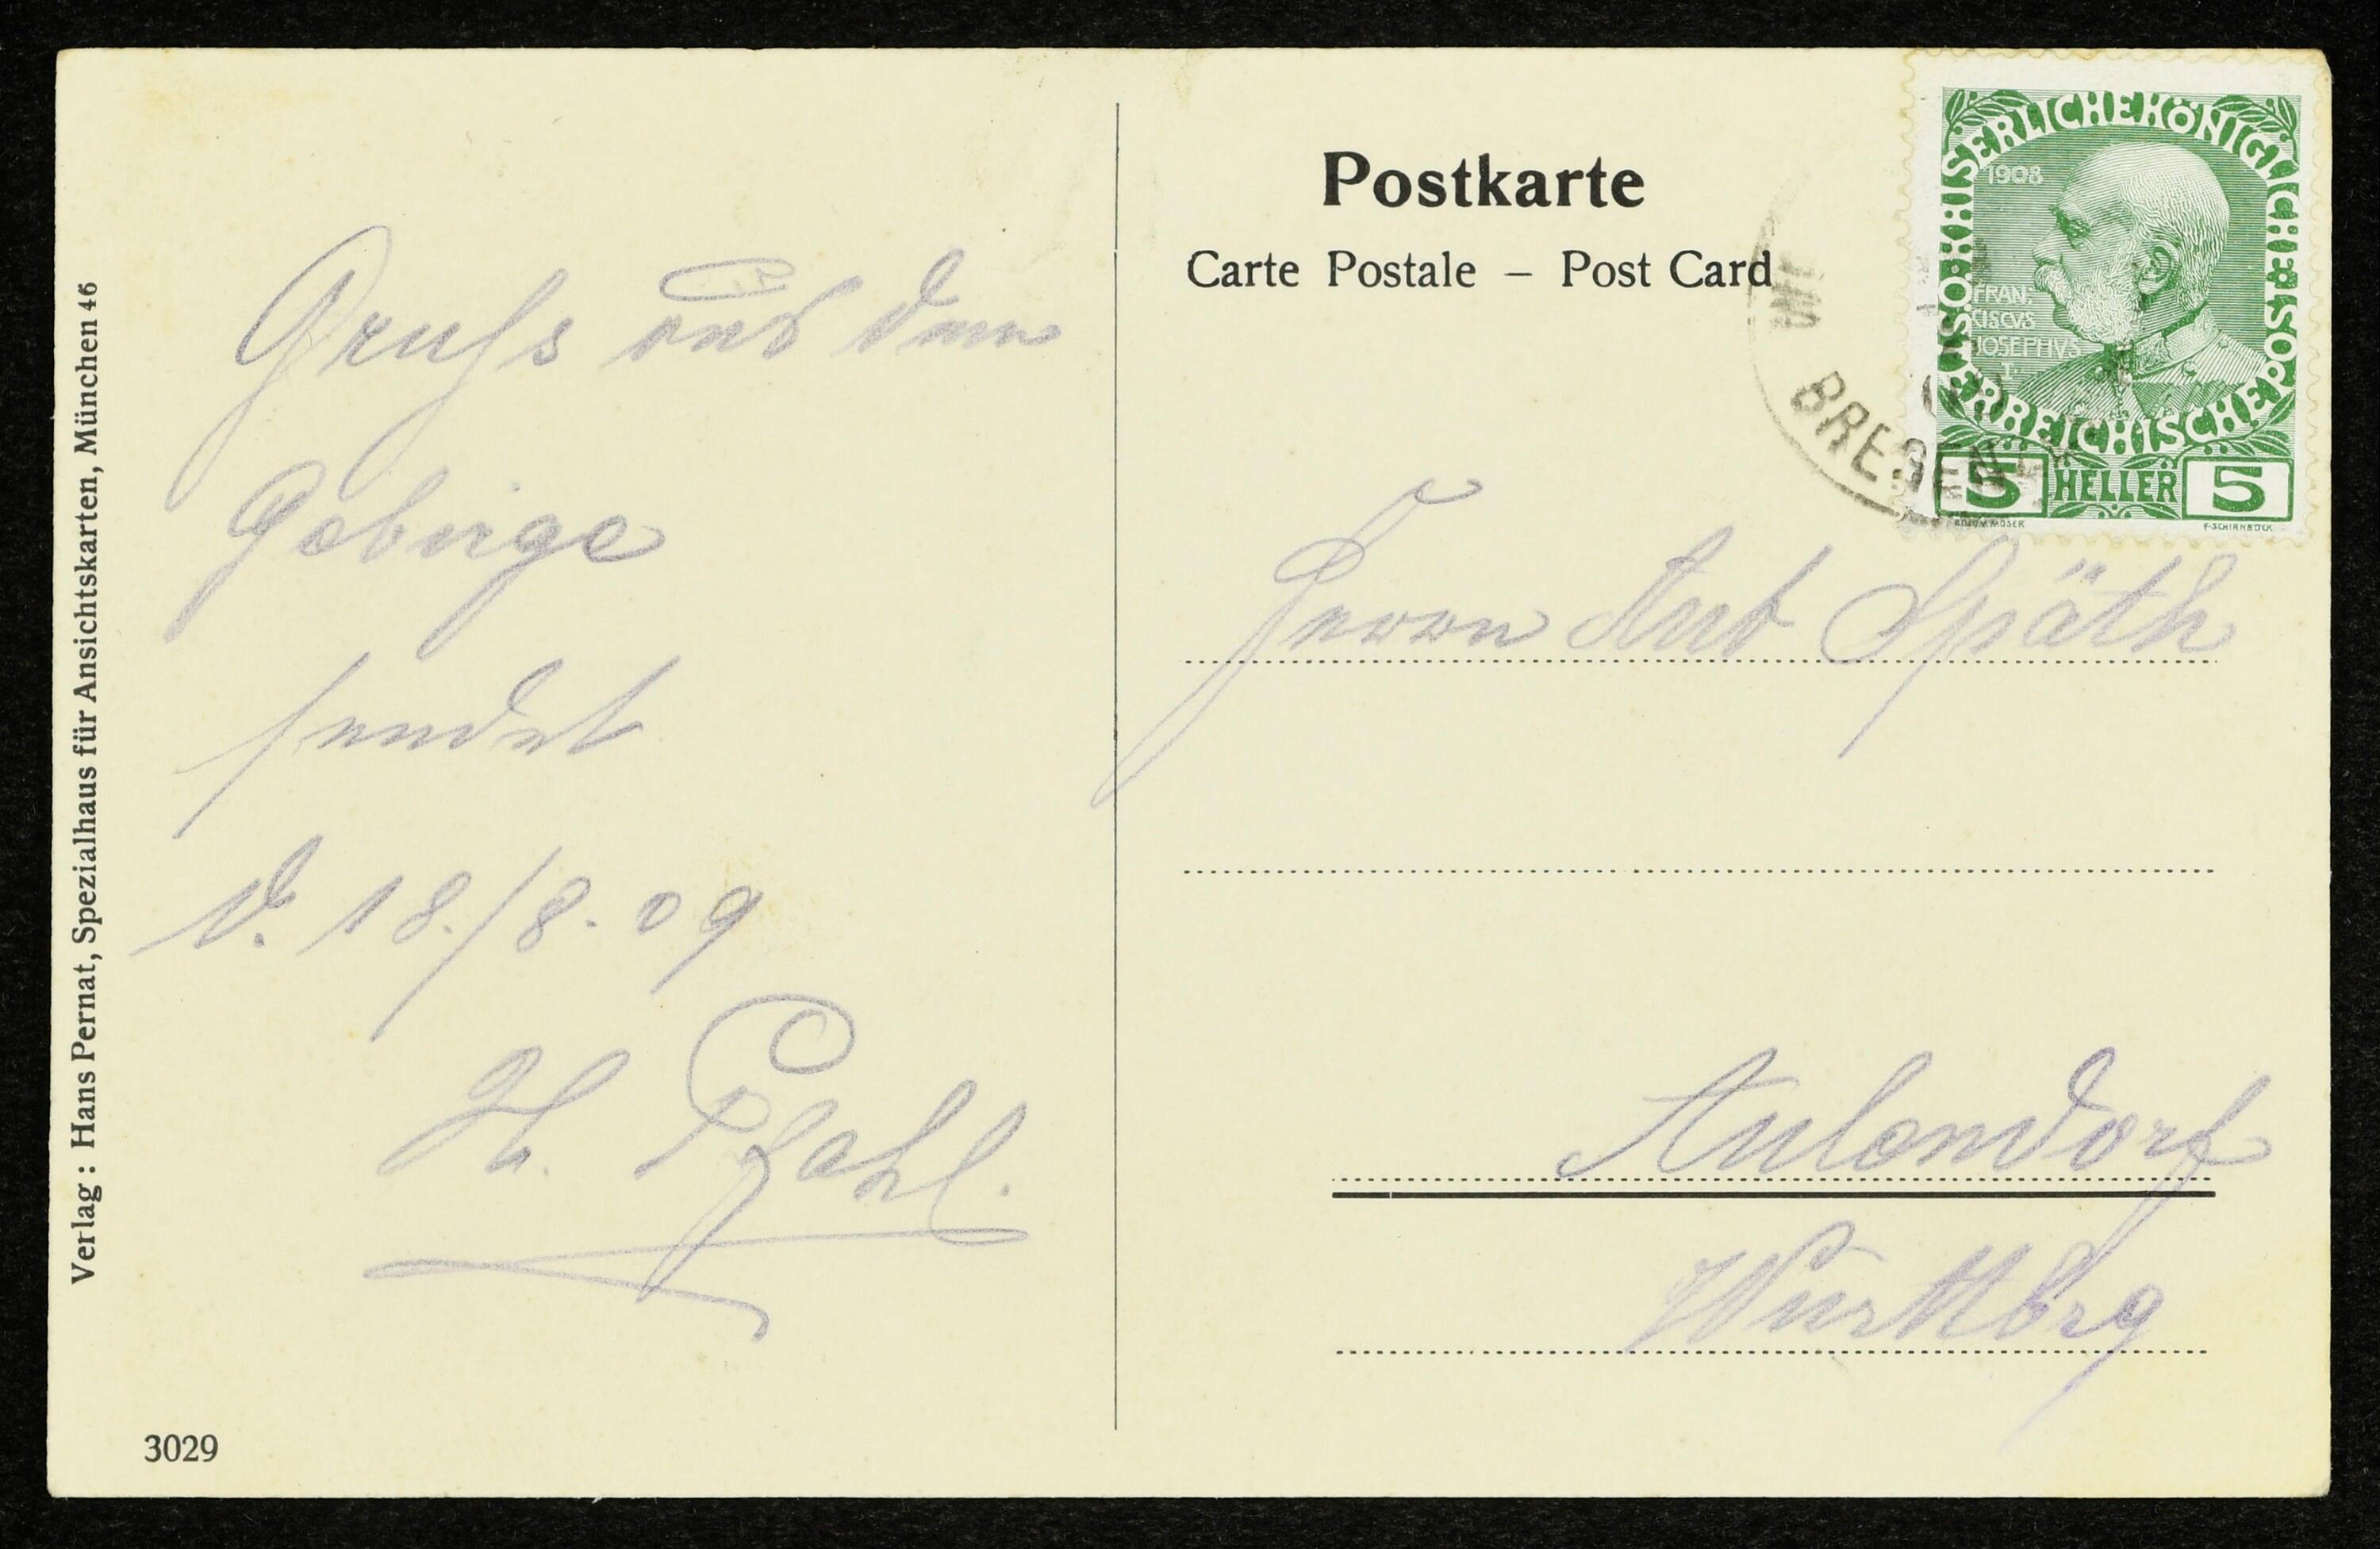 Verlag : Hans Pernat, Spezialhaus für Ansichtskarten, München 46
Gruss aus dem
Gebirge
sendet
d. 18./8. 09
H. Pfahl.
3029
Postkarte
Carte Postale – Post Card
KAISERLICHE KÖNIGLICHE ÖSTERREICHISCHE POST
1908
FRAN.
CISCVS
JOSEPHVS
I.
5 HELLER 5
KOLOM. MOSER
F. SCHIRNBÖCK
BREGENZ
Herrn Ant Späth
Aulendorf
Württbrg